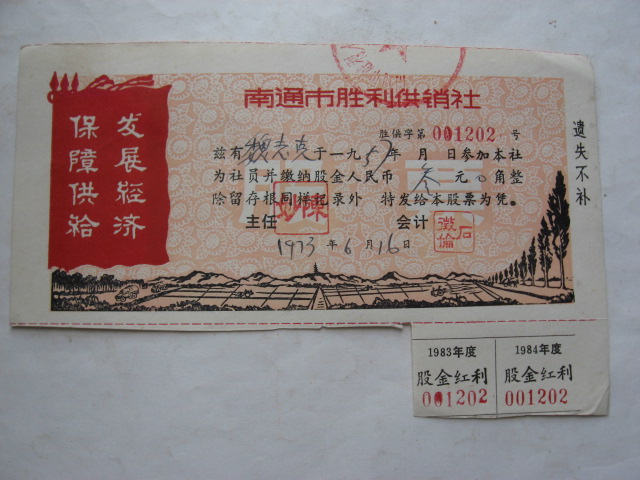 南通市胜利供销社
发展经济
保障供给
胜供字第001202号
兹有魏志克于一九57年 月 日参加本社
为社员并缴纳股金人民币叁元0角整
除留存根同样纪录外 特发给本股票为凭。
主任 会计
1973年6月16日
遗失不补
1983年度
股金红利
001202
1984年度
股金红利
001202